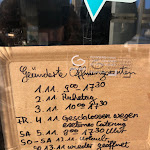 Geänderte Öffnungszeiten
1.11. 8⁰⁰ 17³⁰
2.11. Ruhetag
3.11. 10⁰⁰ 17³⁰
FR. 4.11. Geschlossen wegen
externes Catering
SA 5.11. 8⁰⁰ 17³⁰ Uhr
SO - SA 12.11.
SO 13.11 wieder geöffnet